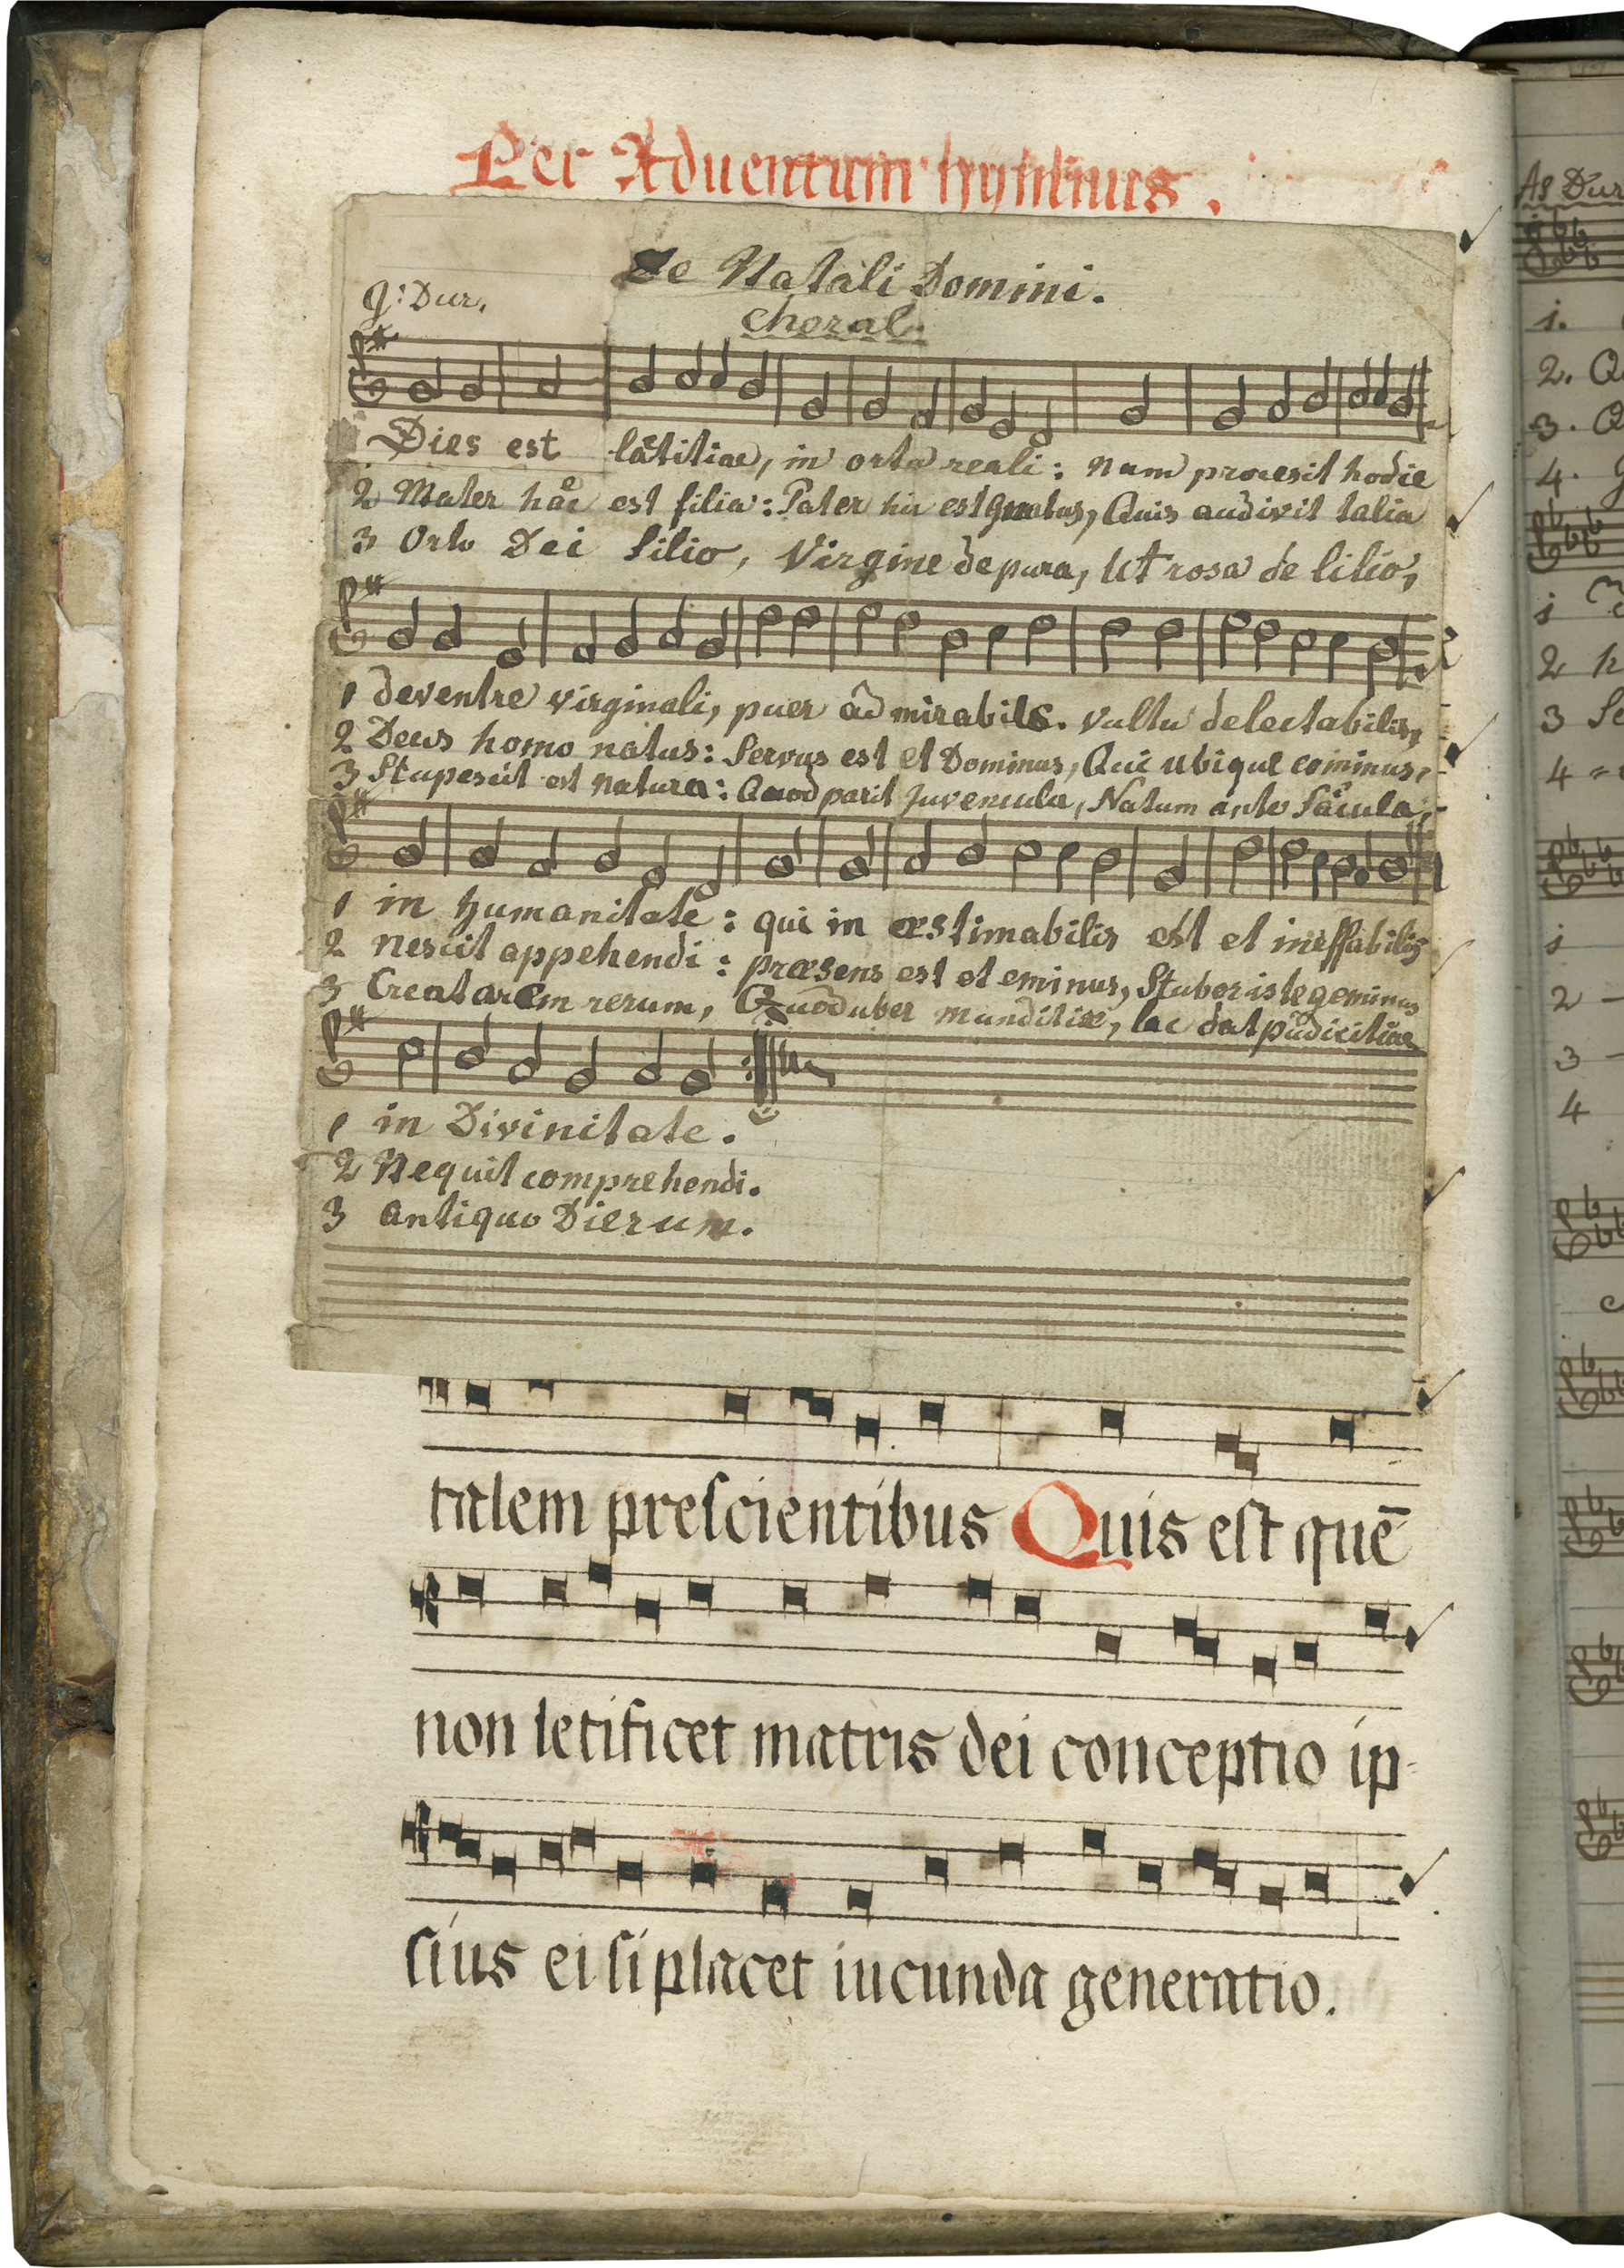 Per Aduentum hymnus.
De Natali Domini.
g: Dur.
choral.
Dies est lætitiae, in orta reali: nam processit hodie
2 Mater hæc est filia: Pater hic est gnatus, Quis audivit talia
3 Orto Dei filio, Virgine de pura, Ut rosa de lilio,
1 deventre virginali, puer admirabilis. vultu delectabilis,
2 Deus homo natus: Servus est et Dominus, Qui ubique cominus,
3 Stupescit est natura: Quod parit juvencula, Natum ante Sæcula,
1 in humanitate: qui in æstimabilis est et ineffabilis
2 nescit appehendi: præsens est et eminus, Stubor iste geminus
3 Creatarem rerum, Quod uber munditiæ, lac dat pudicitiae
1 in Divinitate.
2 Nequit comprehendi.
3 antiquo Dierum.
talem prescientibus Quis est quē
non letificet matris dei conceptio ip-
sius ei si placet iucunda generatio.
As Dur
1.
2. Q
3. Q
4.
1
2 h
3 Se
4
1
2
3
4